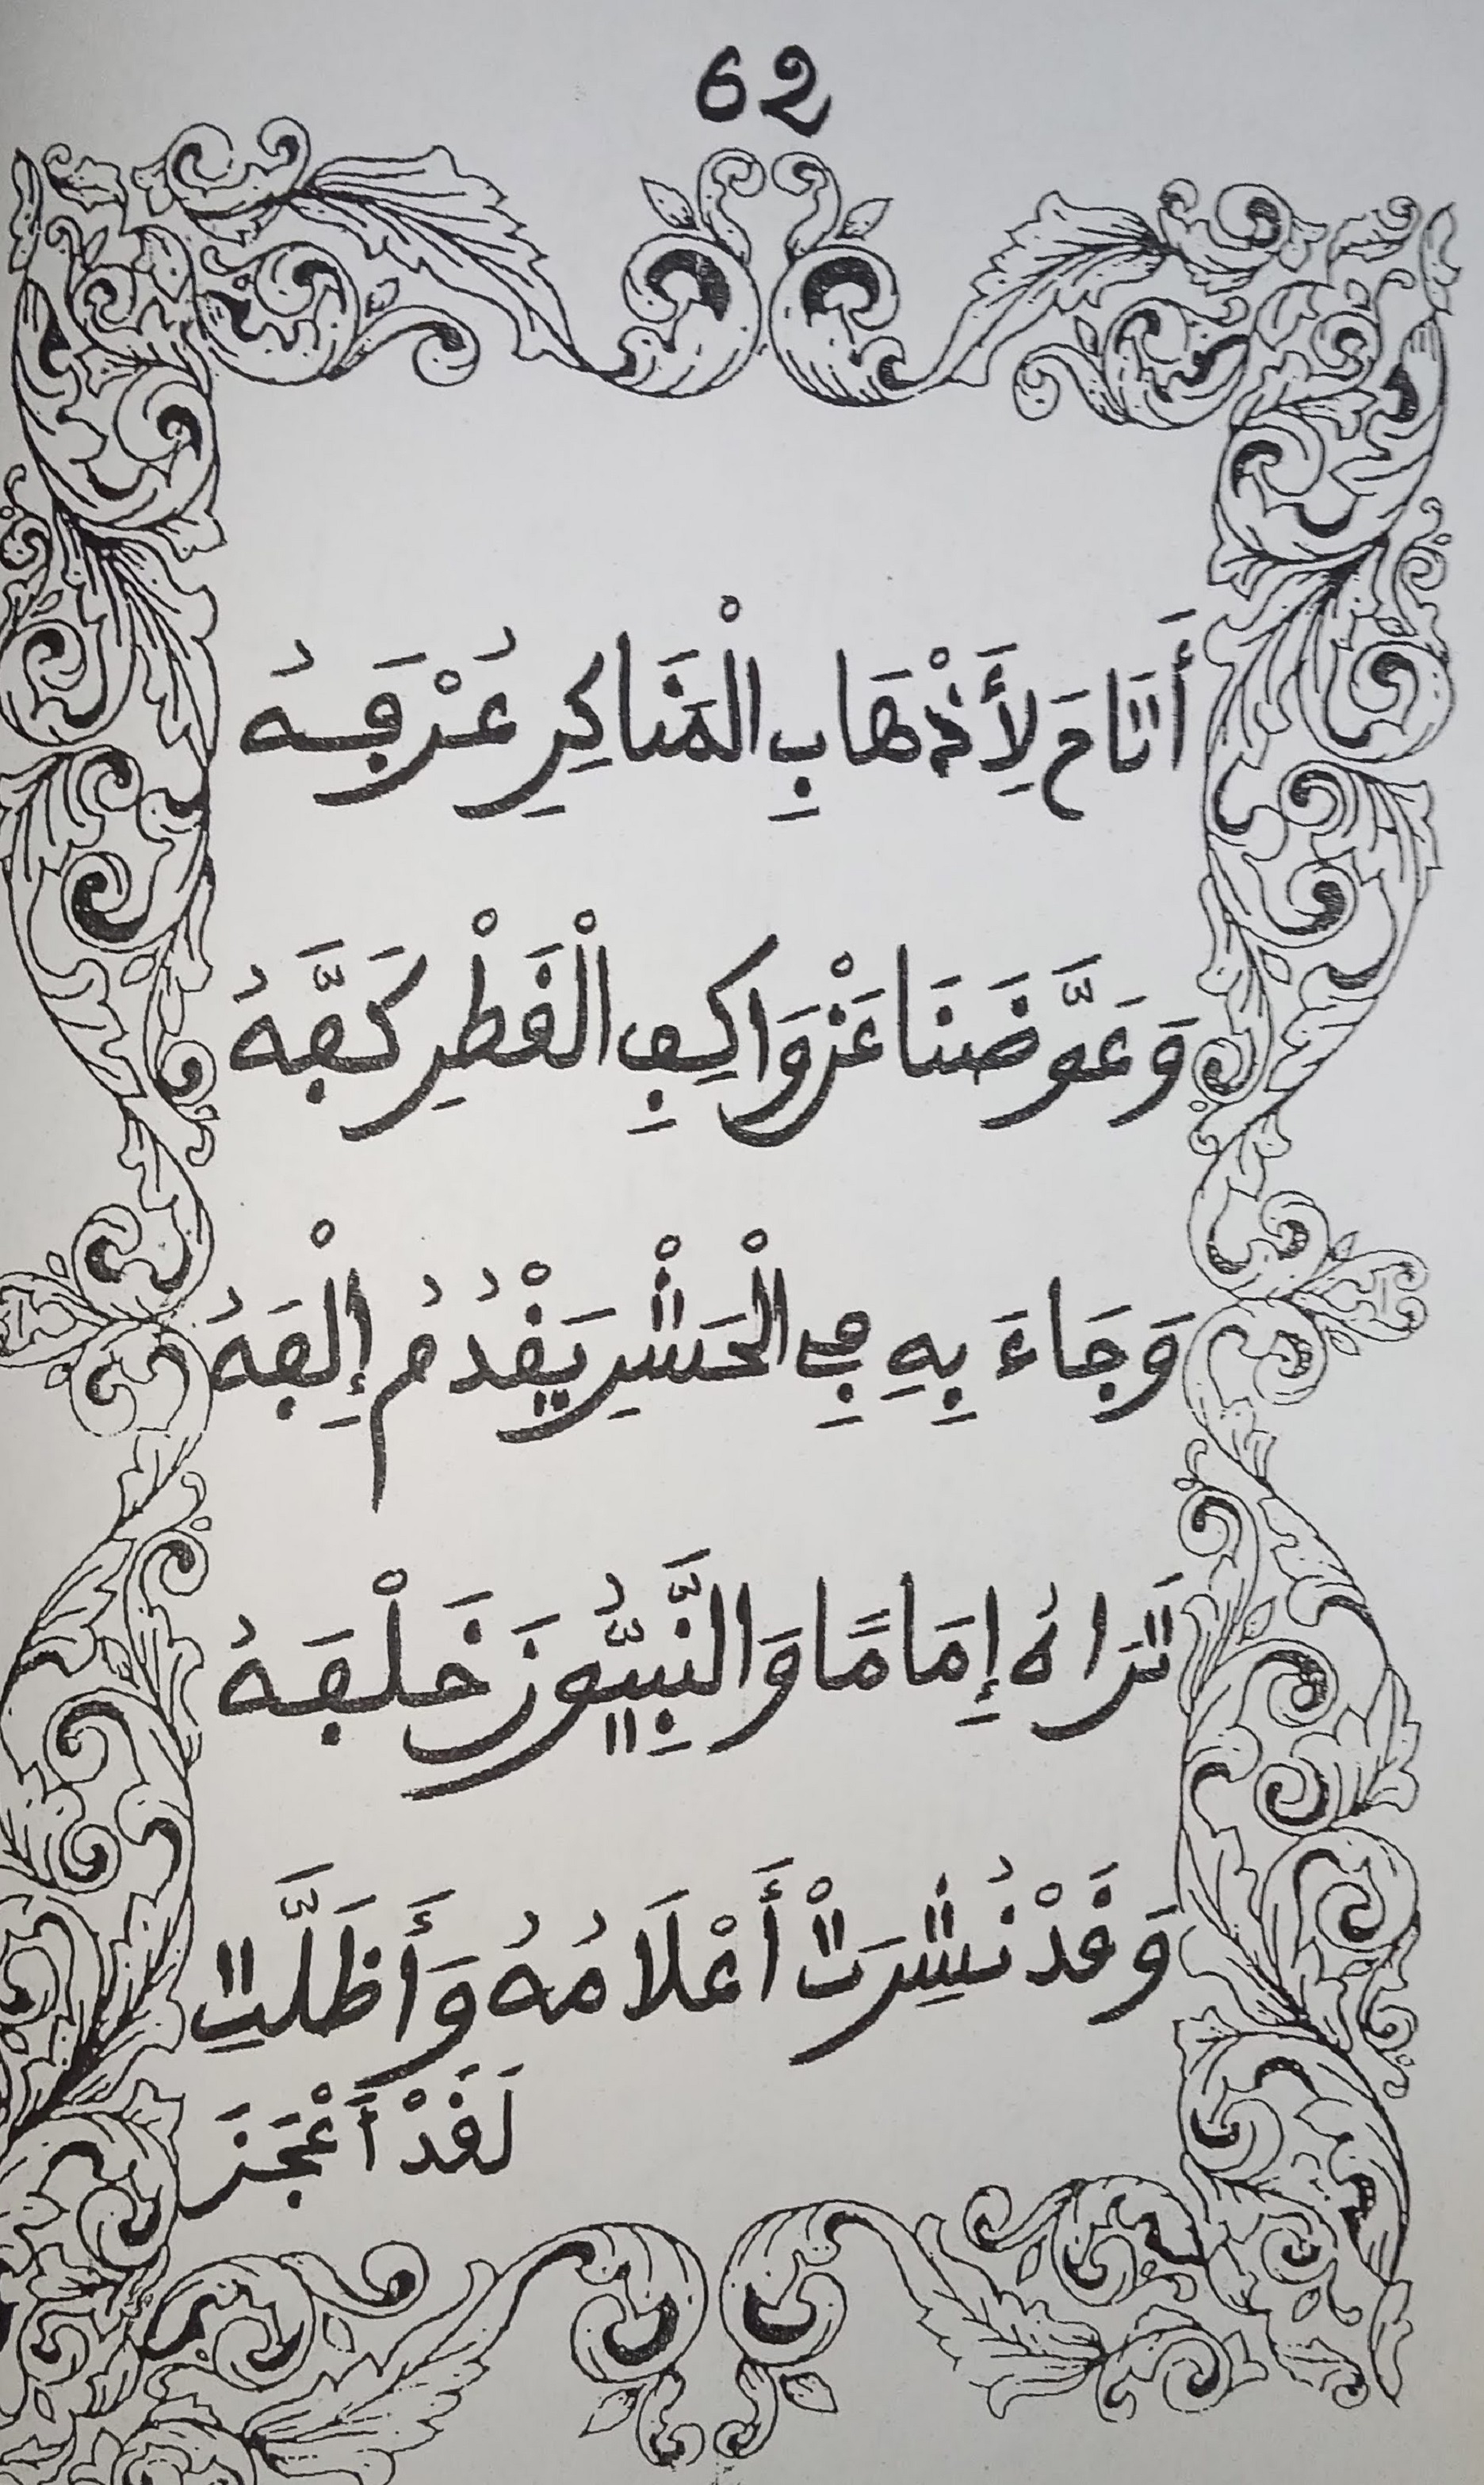 62
أَتَاحَ لِأَذْهَابِ الْمَنَاكِرِ عُرْفَهُ
وَعَوَّضَنَا عَنْ وَاكِفِ الْقَطْرِ كَفَّهُ
وَجَاءَ بِهِ فِي الْحَشْرِ يَقْدُمُ إِلْفَهُ
تَرَاهُ إِمَامًا وَالنَّبِيُّونَ خَلْفَهُ
وَقَدْ نُشِرَتْ أَعْلَامُهُ وَأَظَلَّتِ
لَقَدْ أَعْجَزَ